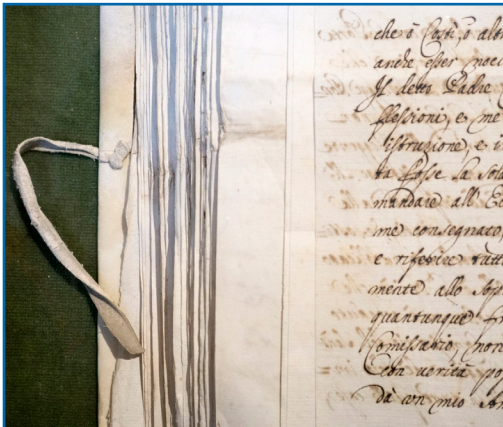 che ò Costì, ò altr
anche esser noci
Il detto Padre
flessioni, e me
istruzione, e i
ta fosse la sola
mandare all Ec
me consegnato,
e riferire tutt
mente allo
quantunque
Comissario, non
Con verità po
dà un mio